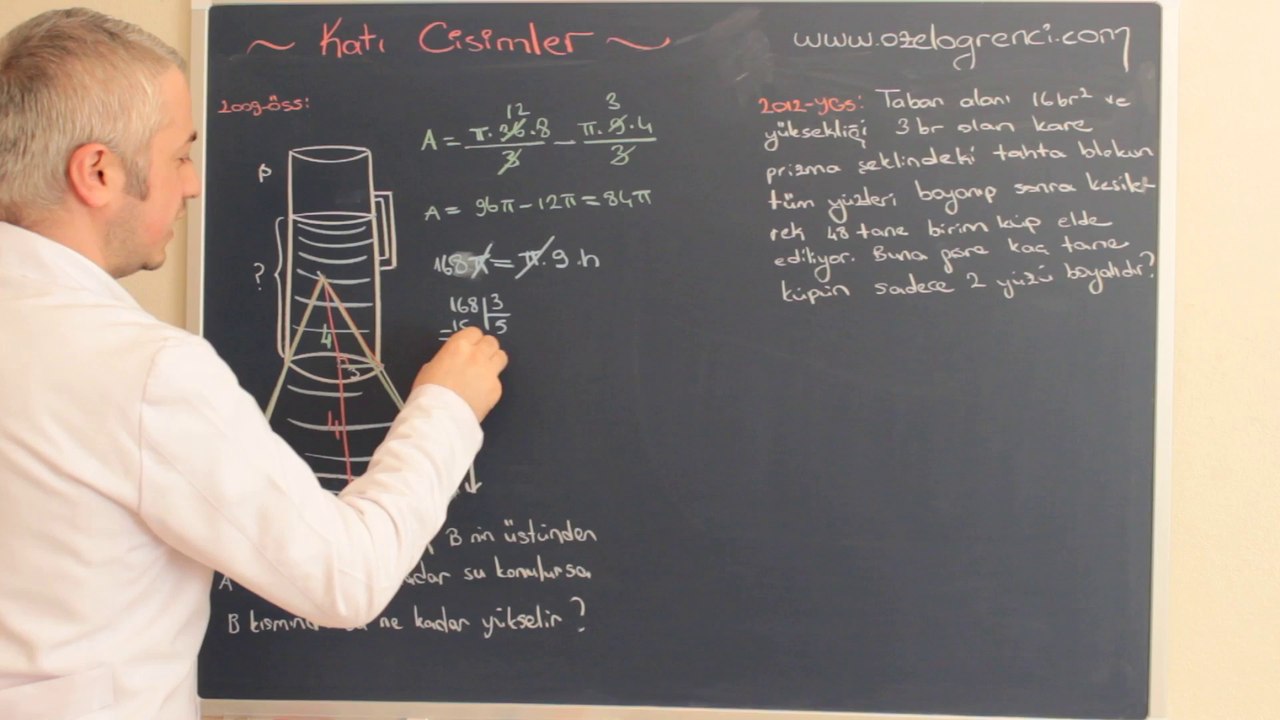 ~ Katı Cisimler ~
www.ozelogrenci.com
2009-öss:
12
3
A = π.36.8/3 - π.9.4/3
A = 96π - 12π = 84π
168π = π.9.h
168 3
15 5
?
4
3
4
B nin üstünden
A su konulursa,
B ne kadar yükselir?
2012-YGS: Taban alanı 16br² ve
yüksekliği 3br olan kare
prizma şeklindeki tahta blokun
tüm yüzleri boyanıp sonra kesile-
rek 48 tane birim küp elde
ediliyor. Buna göre kaç tane
küpün sadece 2 yüzü boyalıdır?